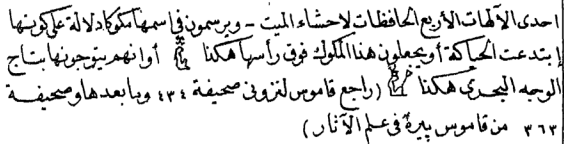 احدى الآلهات الأربع الحافظات لاحشاء الميت - ويرسمون في اسمها مكوكا دلالة على كونها
إبتدعت الحياكة أو يجعلون هذا المكوك فوق رأسها هكذا أو انهم يتوجونها بتاج
الوجه البحرى هكذا (راجع قاموس لنزونى صحيفة ٤٣٤ وما بعدها وصحيفة
٣٦٣ من قاموس بيره فى علم الآثار)